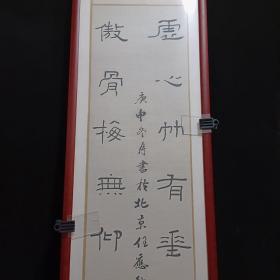 虛心竹有垂
傲骨梅無仰
庚申冬月書於北京任應